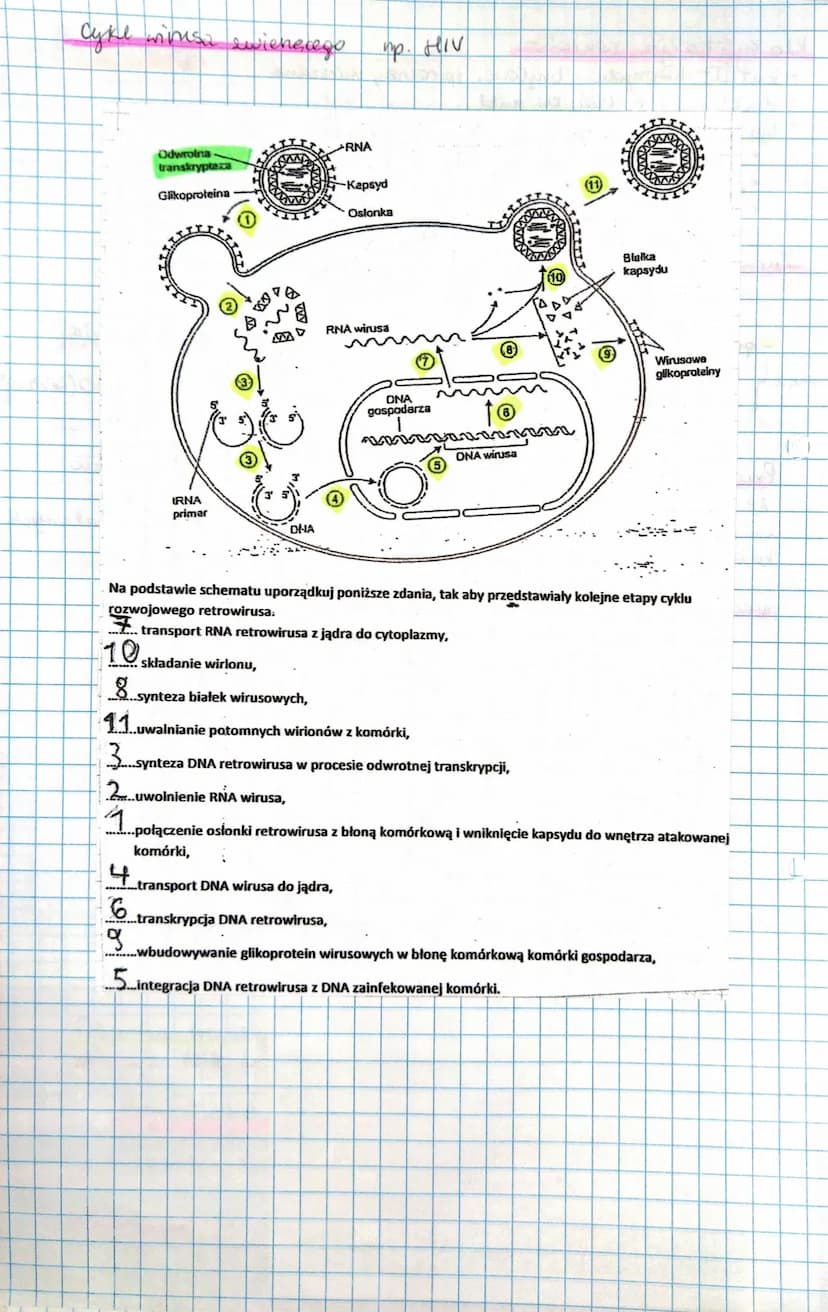 Cykl wirusa zwierzęcego np. HIV
Odwrotna transkryptaza
RNA
Kapsyd
Glikoproteina
Osłonka
1
11
2
10
Białka kapsydu
RNA wirusa
7
8
9
Wirusowe glikoproteiny
3
5' 3' 5' 3' 5'
DNA gospodarza
6
DNA wirusa
3
5
tRNA primer
5' 3' 3' 5'
4
DNA
Na podstawie schematu uporządkuj poniższe zdania, tak aby przedstawiały kolejne etapy cyklu
rozwojowego retrowirusa.
...7... transport RNA retrowirusa z jądra do cytoplazmy,
10 składanie wirionu,
...8...synteza białek wirusowych,
11...uwalnianie potomnych wirionów z komórki,
...3...synteza DNA retrowirusa w procesie odwrotnej transkrypcji,
...2...uwolnienie RNA wirusa,
...1...połączenie osłonki retrowirusa z błoną komórkową i wniknięcie kapsydu do wnętrza atakowanej
komórki,
...4...transport DNA wirusa do jądra,
...6...transkrypcja DNA retrowirusa,
...9...wbudowywanie glikoprotein wirusowych w błonę komórkową komórki gospodarza,
...5...integracja DNA retrowirusa z DNA zainfekowanej komórki.